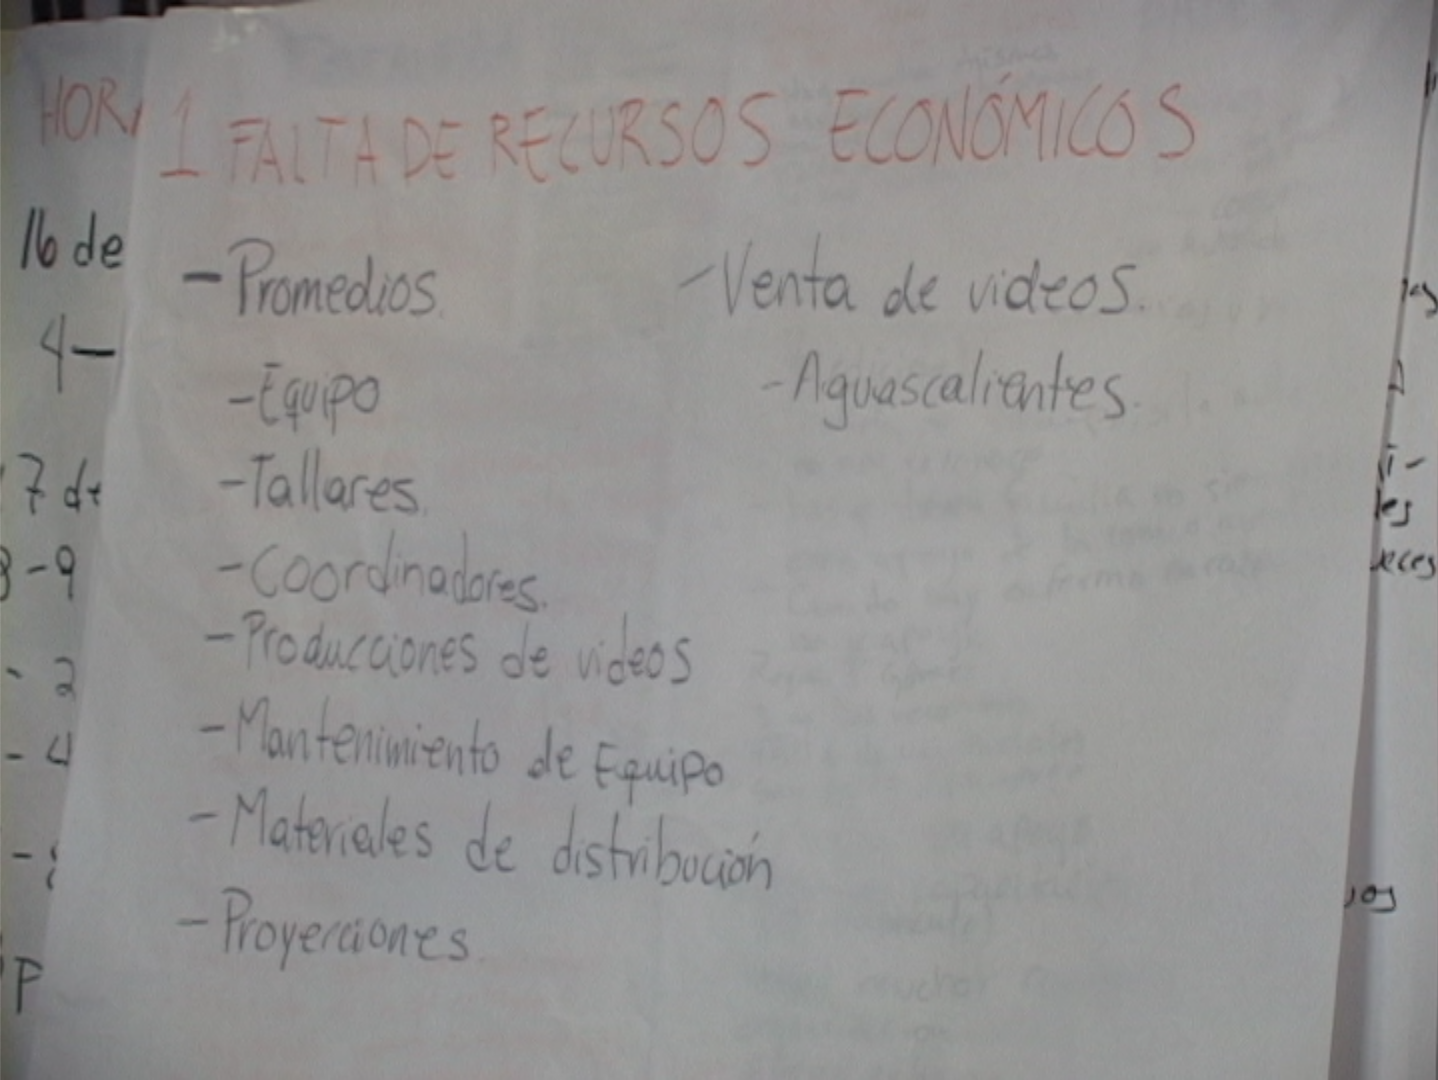 1 FALTA DE RECURSOS ECONÓMICOS
- Promedios.
- Equipo
- Tallares.
- Coordinadores.
- Producciones de videos
- Mantenimiento de Equipo
- Materiales de distribución
- Proyecciones.
- Venta de videos.
- Aguascalientes.
HOR
16 de
4 —
7 de
8 - 9
- 2
- 4